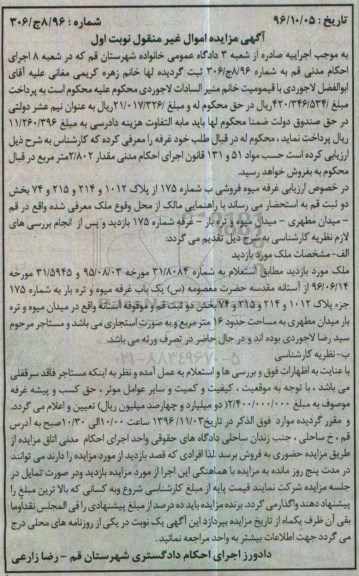 تاریخ : ۹۶/۱۰/۰۵ شماره : ۳۰۶/ج۸/۹۶
آگهی مزایده اموال غیر منقول نوبت اول
به موجب اجراییه صادره از شعبه ۳ دادگاه عمومی خانواده شهرستان قم که در شعبه ۸ اجرای
احکام مدنی قم به شماره ۳۰۶/ج۸/۹۶ ثبت گردیده لها خانم زهره کریمی مغانی علیه آقای
ابوالفضل لاجوردی با قیمومیت خانم منیر السادات لاجوردی محکوم علیه محکوم است به پرداخت
مبلغ ۴۲۰/۳۴۶/۵۳۴ ریال در حق محکوم له و مبلغ ۲۱/۰۱۷/۳۲۶ ریال به عنوان نیم عشر دولتی
در حق صندوق دولت ضمنا محکوم لها باید مابه التفاوت هزینه دادرسی به مبلغ ۱۱/۲۶۰/۳۹۶
ریال پرداخت نماید ، محکوم له در قبال طلب خود غرفه را معرفی کرده که کارشناس به شرح ذیل
ارزیابی کرده است حسب مواد ۵۱ و ۱۳۱ قانون اجرای احکام مدنی مقدار ۲/۸۰۲ متر مربع در قبال
محکوم به بفروش خواهد رسید.
در خصوص ارزیابی غرفه میوه فروشی ب شماره ۱۷۵ از پلاک ۱۰۱۲ و ۲۱۴ و ۲۱۵ و ۷۴ بخش
دو ثبت قم به استحضار می رساند با راهنمایی مالک از محل وقوع ملک معرفی شده واقع در قم
– میدان مطهری – میدان میوه و تره بار – غرفه شماره ۱۷۵ بازدید و پس از انجام بررسی های
لازم نظریه کارشناسی به شرح ذیل تقدیم می گردد:
الف- مشخصات ملک مورد بازدید
ملک مورد بازدید مطابق استعلام به شماره ۳۱/۸۰۸۴ مورخه ۹۵/۰۸/۰۳ و ۳۱/۵۹۴۵ مورخه
۹۶/۰۶/۱۴ از آستانه مقدسه حضرت معصومه (س) یک باب غرفه میوه و تره بار به شماره ۱۷۵
جزء پلاک ۱۰۱۲ و ۲۱۴ و ۲۱۵ و ۷۴ بخش دو ثبت قم و موقوفه آستانه واقع در میدان میوه و تره
بار میدان مطهری به مساحت حدود ۱۶ متر مربع و به صورت استجاری می باشد و مستاجر مرحوم
سید رضا لاجوردی بوده اند و در حال حاضر در تصرف ورثه می باشد.
ب- نظریه کارشناسی
با عنایت به اظهارات فوق و بررسی ها و استعلام به عمل آمده و نظر به اینکه مستاجر فاقد سرقفلی
می باشد ، با توجه به موقعیت ، کیفیت و کمیت و سایر عوامل موثر ، حق کسب و پیشه غرفه
موصوف به مبلغ ۲/۴۰۰/۰۰۰/۰۰۰ (دو میلیارد و چهارصد میلیون ریال) تعیین و اعلام می گردد.
و مقرر گردیده موارد فوق الذکر در تاریخ ۱۳۹۶/۱۱/۰۳ ساعت ۱۰/۰۰ الی ۱۰/۳۰ صبح به آدرس
قم ، خ ساحلی ، جنب زندان ساحلی دادگاه های حقوقی واحد اجرای احکام مدنی اتاق مزایده از
طریق مزایده حضوری به فروش برسد . لذا افرادی که قصد بازدید از مورد مزایده را دارند می توانند
در مدت پنج روز مانده به مزایده با هماهنگی این اجرا از مورد مزایده بازدید ودر صورت تمایل در
جلسه مزایده شرکت نمایند قیمت پایه از مبلغ کارشناسی شروع وبه کسانی که بالا ترین مبلغ را
پیشنهاد دهند واگذار می گردد. برنده مزایده باید ده درصد از مبلغ پیشنهادی را فی المجلس نقدا وما
بقی آن ظرف یکماه از تاریخ مزایده بپردازد این آگهی یک نوبت در یکی از روزنامه های محلی درج
می گردد جهت اطلاعات بیشتر به واحد مراجعه نمائید .
دادورز اجرای احکام دادگستری شهرستان قم – رضا زارعی
۰۲۱-۸۸۳۴۹۶۷۰-۵